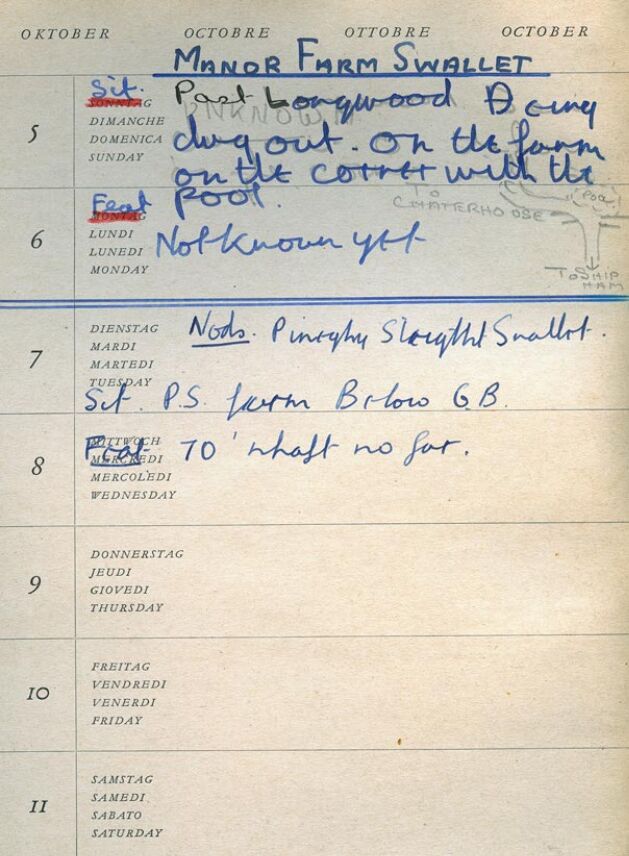 OKTOBER OCTOBRE OTTOBRE OCTOBER
MANOR FARM SWALLET
Sit. Past Longwood Being
SONNTAG
UNKNOWN
5
DIMANCHE
DOMENICA
SUNDAY
dug out. On the farm
on the corner with the
Feat pool.
MONTAG
TO CHATERHOOSE
POOL
6
LUNDI
LUNEDI
MONDAY
Not known yet
TO SHIP
HAM
7
DIENSTAG
MARDI
MARTEDI
TUESDAY
Nods. Slaught Swallet.
Sit. P.S. farm Below G.B.
8
MITTWOCH
MERCREDI
MERCOLEDI
WEDNESDAY
Feat 70' shaft so far.
9
DONNERSTAG
JEUDI
GIOVEDI
THURSDAY
10
FREITAG
VENDREDI
VENERDI
FRIDAY
11
SAMSTAG
SAMEDI
SABATO
SATURDAY